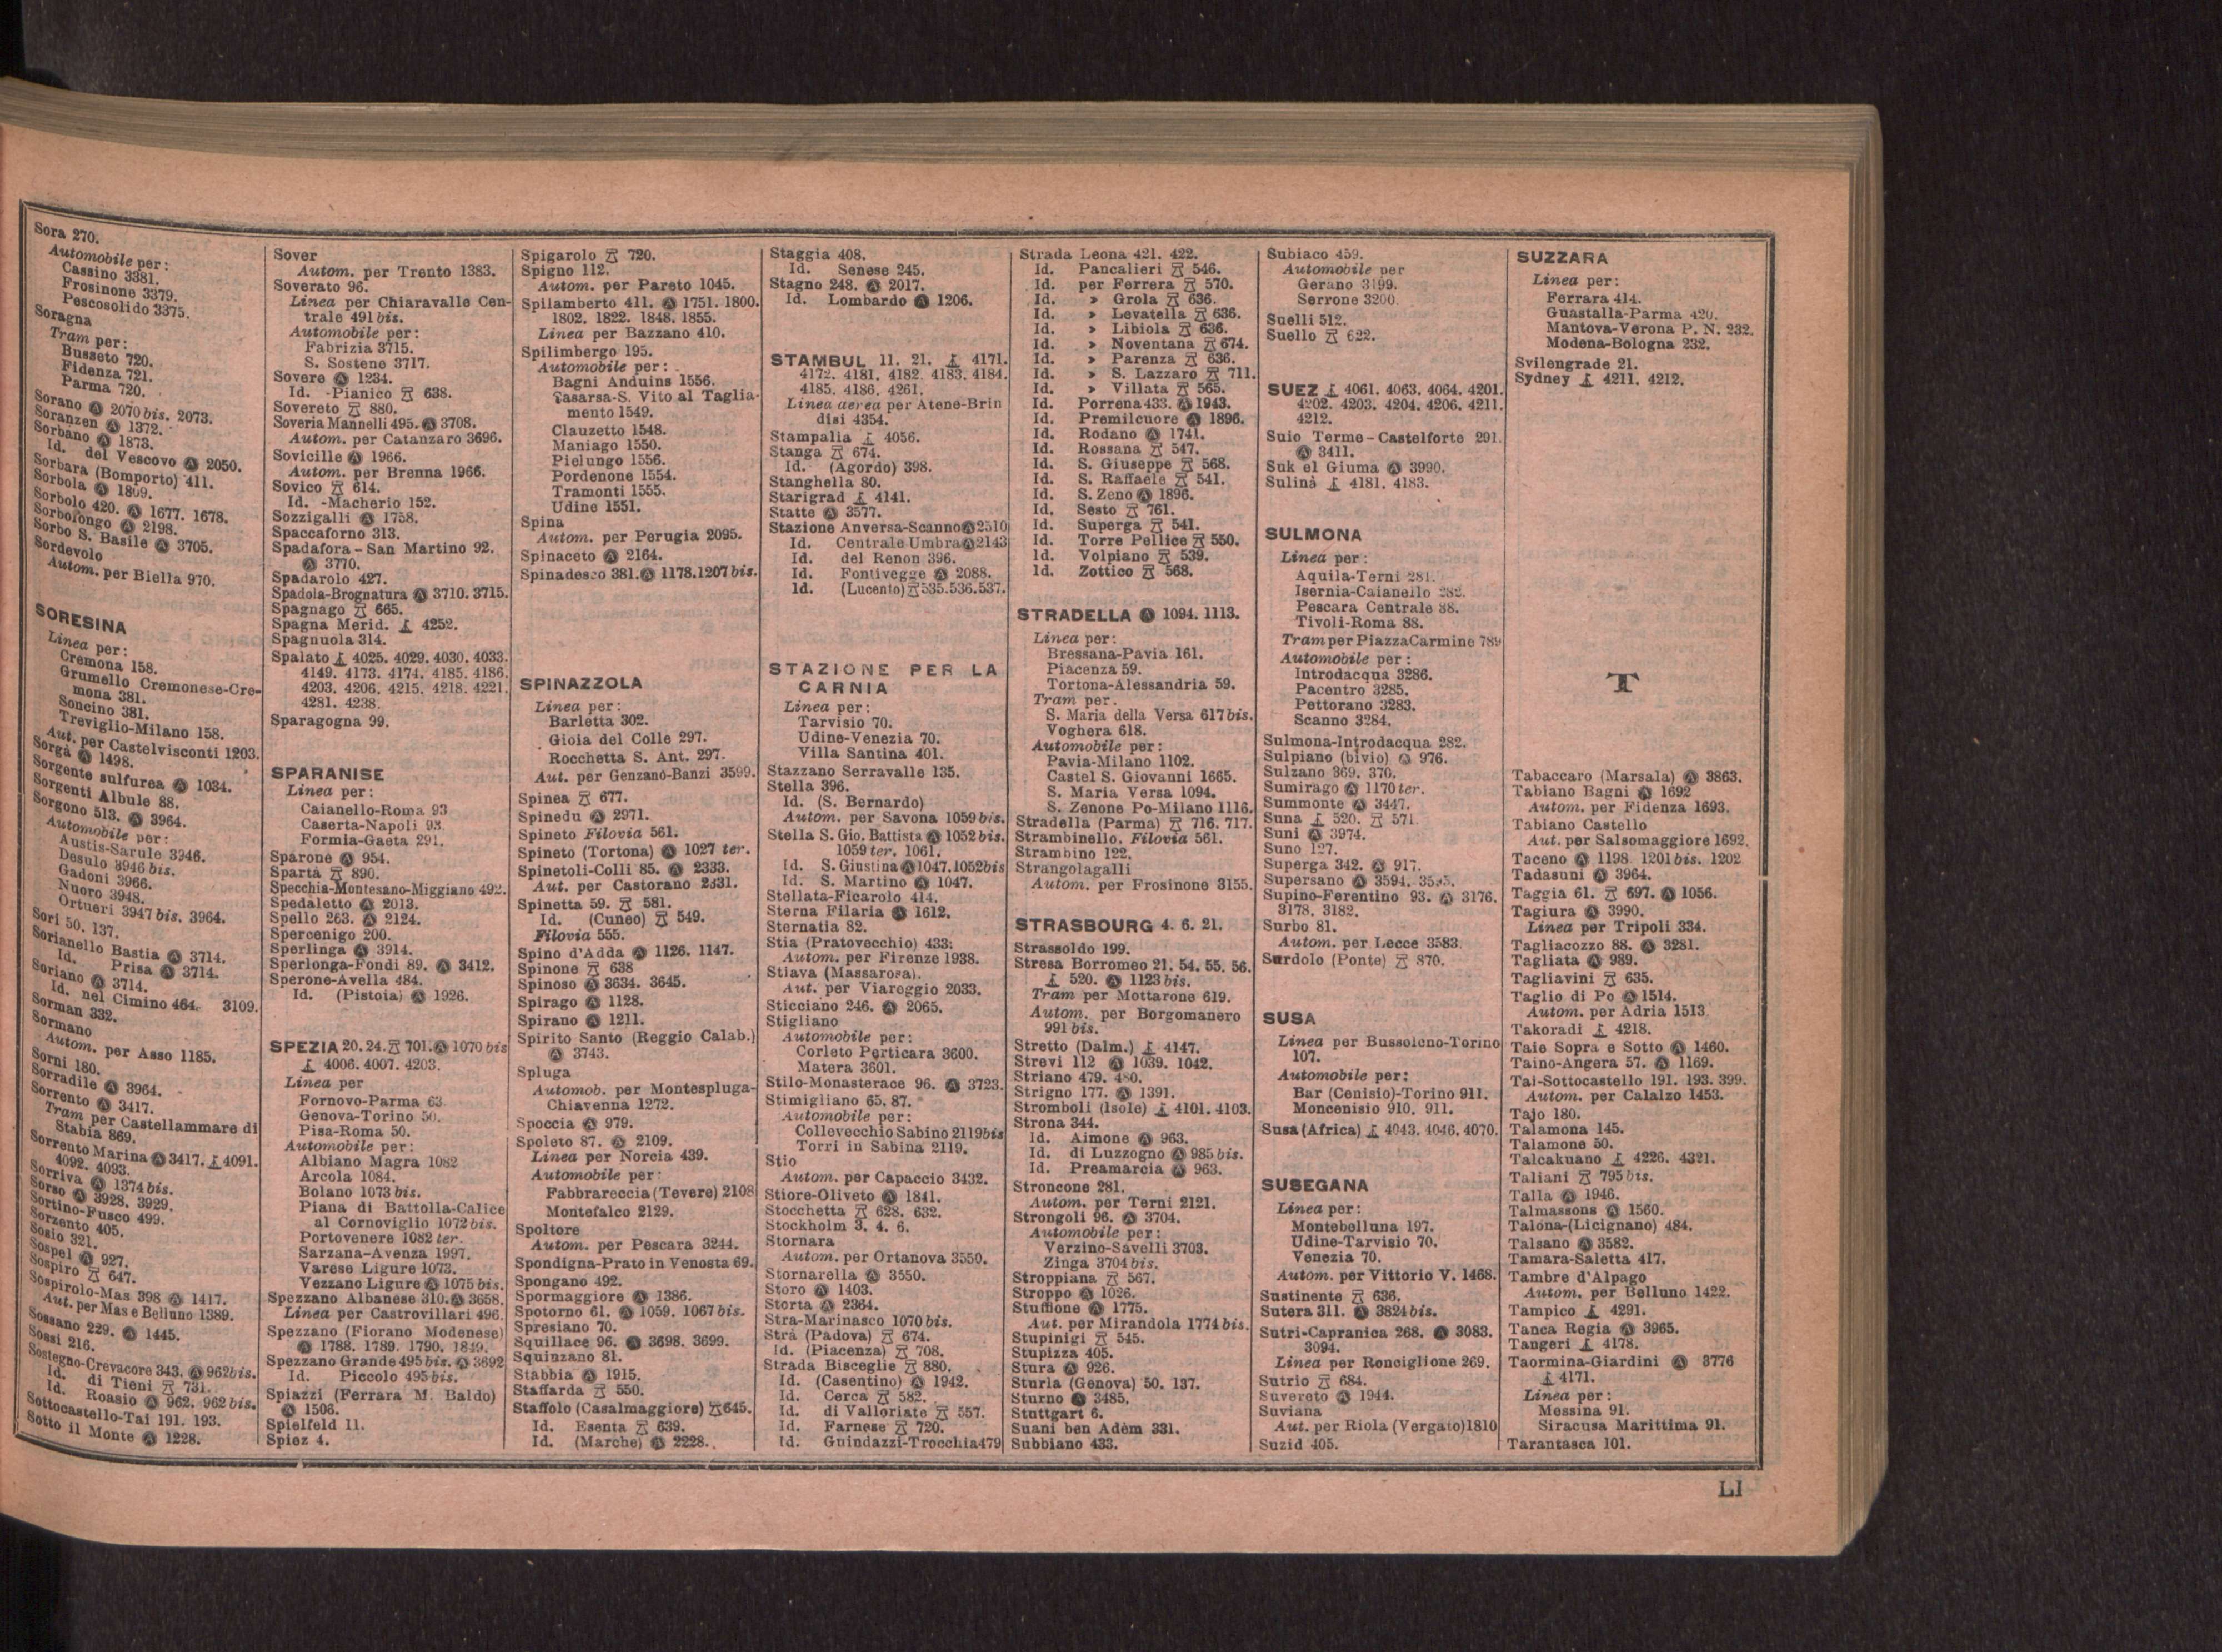 Sora 270.
Automobile per:
Cassino 3381.
Frosinone 3379.
Pescosolido 3375.
Soragna
Tram per:
Busseto 720.
Fidenza 721.
Parma 720.
Sorano Ⓐ 2070 bis. 2073.
Soranzen Ⓐ 1372.
Sorbano Ⓐ 1873.
Id. del Vescovo Ⓐ 2050.
Sorbara (Bomporto) 411.
Sorbola Ⓐ 1809.
Sorbolo 420. Ⓐ 1677. 1678.
Sorbolongo Ⓐ 2198.
Sorbo S. Basile Ⓐ 3705.
Sordevolo
Autom. per Biella 970.
SORESINA
Linea per:
Cremona 158.
Grumello Cremonese-Cre-
mona 381.
Soncino 381.
Treviglio-Milano 158.
Aut. per Castelvisconti 1203.
Sorgà Ⓐ 1498.
Sorgente sulfurea Ⓐ 1034.
Sorgenti Albule 88.
Sorgono 513. Ⓐ 3964.
Automobile per:
Austis-Sarule 3946.
Desulo 3946 bis.
Gadoni 3966.
Nuoro 3948.
Ortueri 3947 bis. 3964.
Sori 50. 137.
Sorianello Bastia Ⓐ 3714.
Id. Prisa Ⓐ 3714.
Soriano Ⓐ 3714.
Id. nel Cimino 464. 3109.
Sorman 332.
Sormano
Autom. per Asso 1185.
Sorni 180.
Sorradile Ⓐ 3964.
Sorrento Ⓐ 3417.
Tram per Castellammare di
Stabia 869.
Sorrento Marina Ⓐ 3417. 4091.
4092. 4093.
Sorriva Ⓐ 1374 bis.
Sorso Ⓐ 3928. 3929.
Sortino-Fusco 499.
Sorzento 405.
Sosio 321.
Sospel Ⓐ 927.
Sospiro 647.
Sospirolo-Mas 398 Ⓐ 1417.
Aut. per Mas e Belluno 1389.
Sossano 229. Ⓐ 1445.
Sossi 216.
Sostegno-Crevacore 343. Ⓐ 962 bis.
Id. di Tieni 731.
Id. Roasio Ⓐ 962. 962 bis.
Sottocastello-Tai 191. 193.
Sotto il Monte Ⓐ 1228.
Sover
Autom. per Trento 1383.
Soverato 96.
Linea per Chiaravalle Cen-
trale 491 bis.
Automobile per:
Fabrizia 3715.
S. Sostene 3717.
Sovere Ⓐ 1234.
Id. -Pianico 638.
Sovereto 880.
Soveria Mannelli 495. Ⓐ 3708.
Autom. per Catanzaro 3696.
Sovicille Ⓐ 1966.
Autom. per Brenna 1966.
Sovico 614.
Id. -Macherio 152.
Sozzigalli Ⓐ 1758.
Spaccaforno 313.
Spadafora – San Martino 92.
Ⓐ 3770.
Spadarolo 427.
Spadola-Brognatura Ⓐ 3710. 3715.
Spagnago 665.
Spagna Merid. 4252.
Spagnuola 314.
Spalato 4025. 4029. 4030. 4033.
4149. 4173. 4174. 4185. 4186.
4203. 4206. 4215. 4218. 4221.
4281. 4238.
Sparagogna 99.
SPARANISE
Linea per:
Caianello-Roma 93
Caserta-Napoli 93.
Formia-Gaeta 291.
Sparone Ⓐ 954.
Spartà 890.
Specchia-Montesano-Miggiano 492.
Spedaletto Ⓐ 2013.
Spello 263. Ⓐ 2124.
Spercenigo 200.
Sperlinga Ⓐ 3914.
Sperlonga-Fondi 89. Ⓐ 3412.
Sperone-Avella 484.
Id. (Pistoia) Ⓐ 1926.
SPEZIA 20. 24. 701. Ⓐ 1070 bis
4006. 4007. 4203.
Linea per
Fornovo-Parma 63
Genova-Torino 50.
Pisa-Roma 50.
Automobile per:
Albiano Magra 1082
Arcola 1084.
Bolano 1073 bis.
Piana di Battolla-Calice
al Cornoviglio 1072 bis.
Portovenere 1082 ter.
Sarzana-Avenza 1997.
Varese Ligure 1073.
Vezzano Ligure Ⓐ 1075 bis.
Spezzano Albanese 310. Ⓐ 3658.
Linea per Castrovillari 496.
Spezzano (Fiorano Modenese)
Ⓐ 1788. 1789. 1790. 1849.
Spezzano Grande 495 bis. Ⓐ 3692
Id. Piccolo 495 bis.
Spiazzi (Ferrara M. Baldo)
Ⓐ 1506.
Spielfeld 11.
Spiez 4.
Spigarolo 720.
Spigno 112.
Autom. per Pareto 1045.
Spilamberto 411. Ⓐ 1751. 1800.
1802. 1822. 1848. 1855.
Linea per Bazzano 410.
Spilimbergo 195.
Automobile per:
Bagni Anduins 1556.
Casarsa-S. Vito al Taglia-
mento 1549.
Clauzetto 1548.
Maniago 1550.
Pielungo 1556.
Pordenone 1554.
Tramonti 1555.
Udine 1551.
Spina
Autom. per Perugia 2095.
Spinaceto Ⓐ 2164.
Spinadesco 381. Ⓐ 1178. 1207 bis.
SPINAZZOLA
Linea per:
Barletta 302.
Gioia del Colle 297.
Rocchetta S. Ant. 297.
Aut. per Genzano-Banzi 3599.
Spinea 677.
Spinedu Ⓐ 2971.
Spineto Filovia 561.
Spineto (Tortona) Ⓐ 1027 ter.
Spinetoli-Colli 85. Ⓐ 2333.
Aut. per Castorano 2331.
Spinetta 59. 581.
Id. (Cuneo) 549.
Filovia 555.
Spino d'Adda Ⓐ 1126. 1147.
Spinone 638
Spinoso Ⓐ 3634. 3645.
Spirago Ⓐ 1128.
Spirano Ⓐ 1211.
Spirito Santo (Reggio Calab.)
Ⓐ 3743.
Spluga
Automob. per Montespluga-
Chiavenna 1272.
Spoccia Ⓐ 979.
Spoleto 87. Ⓐ 2109.
Linea per Norcia 439.
Automobile per:
Fabbrareccia (Tevere) 2108
Montefalco 2129.
Spoltore
Autom. per Pescara 3244.
Spondigna-Prato in Venosta 69.
Spongano 492.
Spormaggiore Ⓐ 1386.
Spotorno 61. Ⓐ 1059. 1067 bis.
Spresiano 70.
Squillace 96. Ⓐ 3698. 3699.
Squinzano 81.
Stabbia Ⓐ 1915.
Staffarda 550.
Staffolo (Casalmaggiore) 645.
Id. Esenta 639.
Id. (Marche) Ⓐ 2228.
Staggia 408.
Id. Senese 245.
Stagno 248. Ⓐ 2017.
Id. Lombardo Ⓐ 1206.
STAMBUL 11. 21. 4171.
4172. 4181. 4182. 4183. 4184.
4185. 4186. 4261.
Linea aerea per Atene-Brin
disi 4354.
Stampalia 4056.
Stanga 674.
Id. (Agordo) 398.
Stanghella 80.
Starigrad 4141.
Statte Ⓐ 3577.
Stazione Anversa-Scanno Ⓐ 2510
Id. Centrale Umbra Ⓐ 2143
Id. del Renon 396.
Id. Fontivegge Ⓐ 2088.
Id. (Lucento) 535. 536. 537.
STAZIONE PER LA
CARNIA
Linea per:
Tarvisio 70.
Udine-Venezia 70.
Villa Santina 401.
Stazzano Serravalle 135.
Stella 396.
Id. (S. Bernardo)
Autom. per Savona 1059 bis.
Stella S. Gio. Battista Ⓐ 1052 bis.
1059 ter. 1061.
Id. S. Giustina Ⓐ 1047. 1052 bis
Id. S. Martino Ⓐ 1047.
Stellata-Ficarolo 414.
Sterna Filaria Ⓐ 1612.
Sternatia 82.
Stia (Pratovecchio) 433.
Autom. per Firenze 1938.
Stiava (Massarosa).
Aut. per Viareggio 2033.
Sticciano 246. Ⓐ 2065.
Stigliano
Automobile per:
Corleto Perticara 3600.
Matera 3601.
Stilo-Monasterace 96. Ⓐ 3723.
Stimigliano 65. 87.
Automobile per:
Collevecchio Sabino 2119 bis
Torri in Sabina 2119.
Stio
Autom. per Capaccio 3432.
Stiore-Oliveto Ⓐ 1841.
Stocchetta 628. 632.
Stockholm 3. 4. 6.
Stornara
Autom. per Ortanova 3550.
Stornarella Ⓐ 3550.
Storo Ⓐ 1403.
Storta Ⓐ 2364.
Stra-Marinasco 1070 bis.
Strà (Padova) 674.
Id. (Piacenza) 708.
Strada Bisceglie 880.
Id. (Casentino) Ⓐ 1942.
Id. Cerca 582.
Id. di Valloriate 557.
Id. Farnese 720.
Id. Guindazzi-Trocchia 479
Strada Leona 421. 422.
Id. Pancalieri 546.
Id. per Ferrera 570.
Id. » Grola 636.
Id. » Levatella 636.
Id. » Libiola 636.
Id. » Noventana 674.
Id. » Parenza 636.
Id. » S. Lazzaro 711.
Id. » Villata 565.
Id. Porrena 433. Ⓐ 1943.
Id. Premilcuore Ⓐ 1896.
Id. Rodano Ⓐ 1741.
Id. Rossana 547.
Id. S. Giuseppe 568.
Id. S. Raffaele 541.
Id. S. Zeno Ⓐ 1896.
Id. Sesto 761.
Id. Superga 541.
Id. Torre Pellice 550.
Id. Volpiano 539.
Id. Zottico 568.
STRADELLA Ⓐ 1094. 1113.
Linea per:
Bressana-Pavia 161.
Piacenza 59.
Tortona-Alessandria 59.
Tram per.
S. Maria della Versa 617 bis.
Voghera 618.
Automobile per:
Pavia-Milano 1102.
Castel S. Giovanni 1665.
S. Maria Versa 1094.
S. Zenone Po-Milano 1116.
Stradella (Parma) 716. 717.
Strambinello. Filovia 561.
Strambino 122.
Strangolagalli
Autom. per Frosinone 3155.
STRASBOURG 4. 6. 21.
Strassoldo 199.
Stresa Borromeo 21. 54. 55. 56.
520. Ⓐ 1123 bis.
Tram per Mottarone 619.
Autom. per Borgomanero
991 bis.
Stretto (Dalm.) 4147.
Strevi 112 Ⓐ 1039. 1042.
Striano 479. 480.
Strigno 177. Ⓐ 1391.
Stromboli (Isole) 4101. 4103.
Strona 344.
Id. Aimone Ⓐ 963.
Id. di Luzzogno Ⓐ 985 bis.
Id. Preamarcia Ⓐ 963.
Stroncone 281.
Autom. per Terni 2121.
Strongoli 96. Ⓐ 3704.
Automobile per:
Verzino-Savelli 3703.
Zinga 3704 bis.
Stroppiana 567.
Stroppo Ⓐ 1026.
Stuffione Ⓐ 1775.
Aut. per Mirandola 1774 bis.
Stupinigi 545.
Stupizza 405.
Stura Ⓐ 926.
Sturla (Genova) 50. 137.
Sturno Ⓐ 3485.
Stuttgart 6.
Suani ben Adèm 331.
Subbiano 433.
Subiaco 459.
Automobile per
Gerano 3199.
Serrone 3200.
Suelli 512.
Suello 622.
SUEZ 4061. 4063. 4064. 4201.
4202. 4203. 4204. 4206. 4211.
4212.
Suio Terme – Castelforte 291.
Ⓐ 3411.
Suk el Giuma Ⓐ 3990.
Sulinà 4181. 4183.
SULMONA
Linea per:
Aquila-Terni 281.
Isernia-Caianello 282.
Pescara Centrale 88.
Tivoli-Roma 88.
Tram per Piazza Carmine 789
Automobile per:
Introdacqua 3286.
Pacentro 3285.
Pettorano 3283.
Scanno 3284.
Sulmona-Introdacqua 282.
Sulpiano (bivio) Ⓐ 976.
Sulzano 369. 370.
Sumirago Ⓐ 1170 ter.
Summonte Ⓐ 3447.
Suna 520. 571
Suni Ⓐ 3974.
Suno 127.
Superga 342. Ⓐ 917.
Supersano Ⓐ 3594.
Supino-Ferentino 93. Ⓐ 3176.
3178. 3182.
Surbo 81.
Autom. per Lecce 3583.
Surdolo (Ponte) 870.
SUSA
Linea per Bussoleno-Torino
107.
Automobile per:
Bar (Cenisio)-Torino 911.
Moncenisio 910. 911.
Susa (Africa) 4043. 4046. 4070.
SUSEGANA
Linea per:
Montebelluna 197.
Udine-Tarvisio 70.
Venezia 70.
Autom. per Vittorio V. 1468.
Sustinente 636.
Sutera 311. Ⓐ 3824 bis.
Sutri-Capranica 268. Ⓐ 3083.
3094.
Linea per Ronciglione 269.
Sutrio 684.
Suvereto Ⓐ 1944.
Suviana
Aut. per Riola (Vergato) 1810
Suzid 405.
SUZZARA
Linea per:
Ferrara 414.
Guastalla-Parma 420.
Mantova-Verona P. N. 232.
Modena-Bologna 232.
Svilengrade 21.
Sydney 4211. 4212.
T
Tabaccaro (Marsala) Ⓐ 3863.
Tabiano Bagni Ⓐ 1692
Autom. per Fidenza 1693.
Tabiano Castello
Aut. per Salsomaggiore 1692.
Taceno Ⓐ 1198 1201 bis. 1202
Tadasuni Ⓐ 3964.
Taggia 61. 697. Ⓐ 1056.
Tagiura Ⓐ 3990.
Linea per Tripoli 334.
Tagliacozzo 88. Ⓐ 3281.
Tagliata Ⓐ 989.
Tagliavini 635.
Taglio di Po Ⓐ 1514.
Autom. per Adria 1513
Takoradi 4218.
Taie Sopra e Sotto Ⓐ 1460.
Taino-Angera 57. Ⓐ 1169.
Tai-Sottocastello 191. 193. 399.
Autom. per Calalzo 1453.
Tajo 180.
Talamona 145.
Talamone 50.
Talcakuano 4226. 4321.
Taliani 795 bis.
Talla Ⓐ 1946.
Talmassons Ⓐ 1560.
Talona-(Licignano) 484.
Talsano Ⓐ 3582.
Tamara-Saletta 417.
Tambre d'Alpago
Autom. per Belluno 1422.
Tampico 4291.
Tanca Regia Ⓐ 3965.
Tangeri 4178.
Taormina-Giardini Ⓐ 3776
4171.
Linea per:
Messina 91.
Siracusa Marittima 91.
Tarantasca 101.
LI